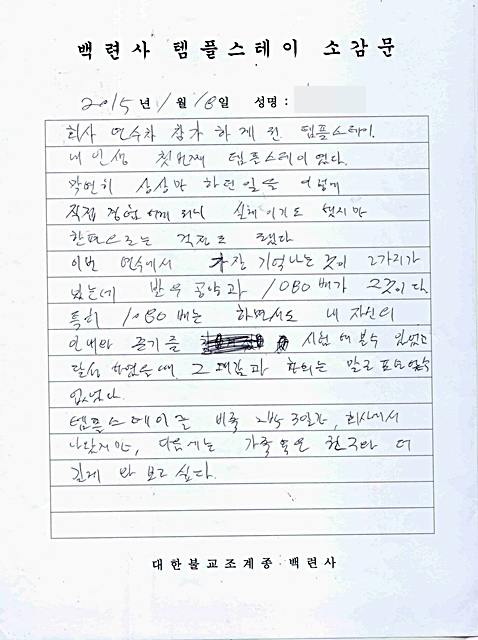 백련사 템플스테이 소감문
2015년 1월 18일 성명 :
회사 연수차 참가 하게 된 템플스테이.
내 인생 첫번째 템플스테이 였다.
막연히 상상만 하던 일을 이렇게
직접 경험 하게 되니 설레이기도 했지만
한편으로는 걱정도 됐다
이번 연수에서 가장 기억나는 것이 2가지가
있는데 발우 공양과 1080배가 그것이다.
특히 1080배는 하면서도 내 자신의
인내와 끈기를 시험 해 볼수 있었고
달성 하였을 때, 그 쾌감과 환희는 말로 표현 할수
없었다.
템플스테이를 비록 2박 3일간, 회사에서
나왔지만, 다음에는 가족 혹은 친구와 더
길게 와 보고 싶다.
대한불교조계종 백련사